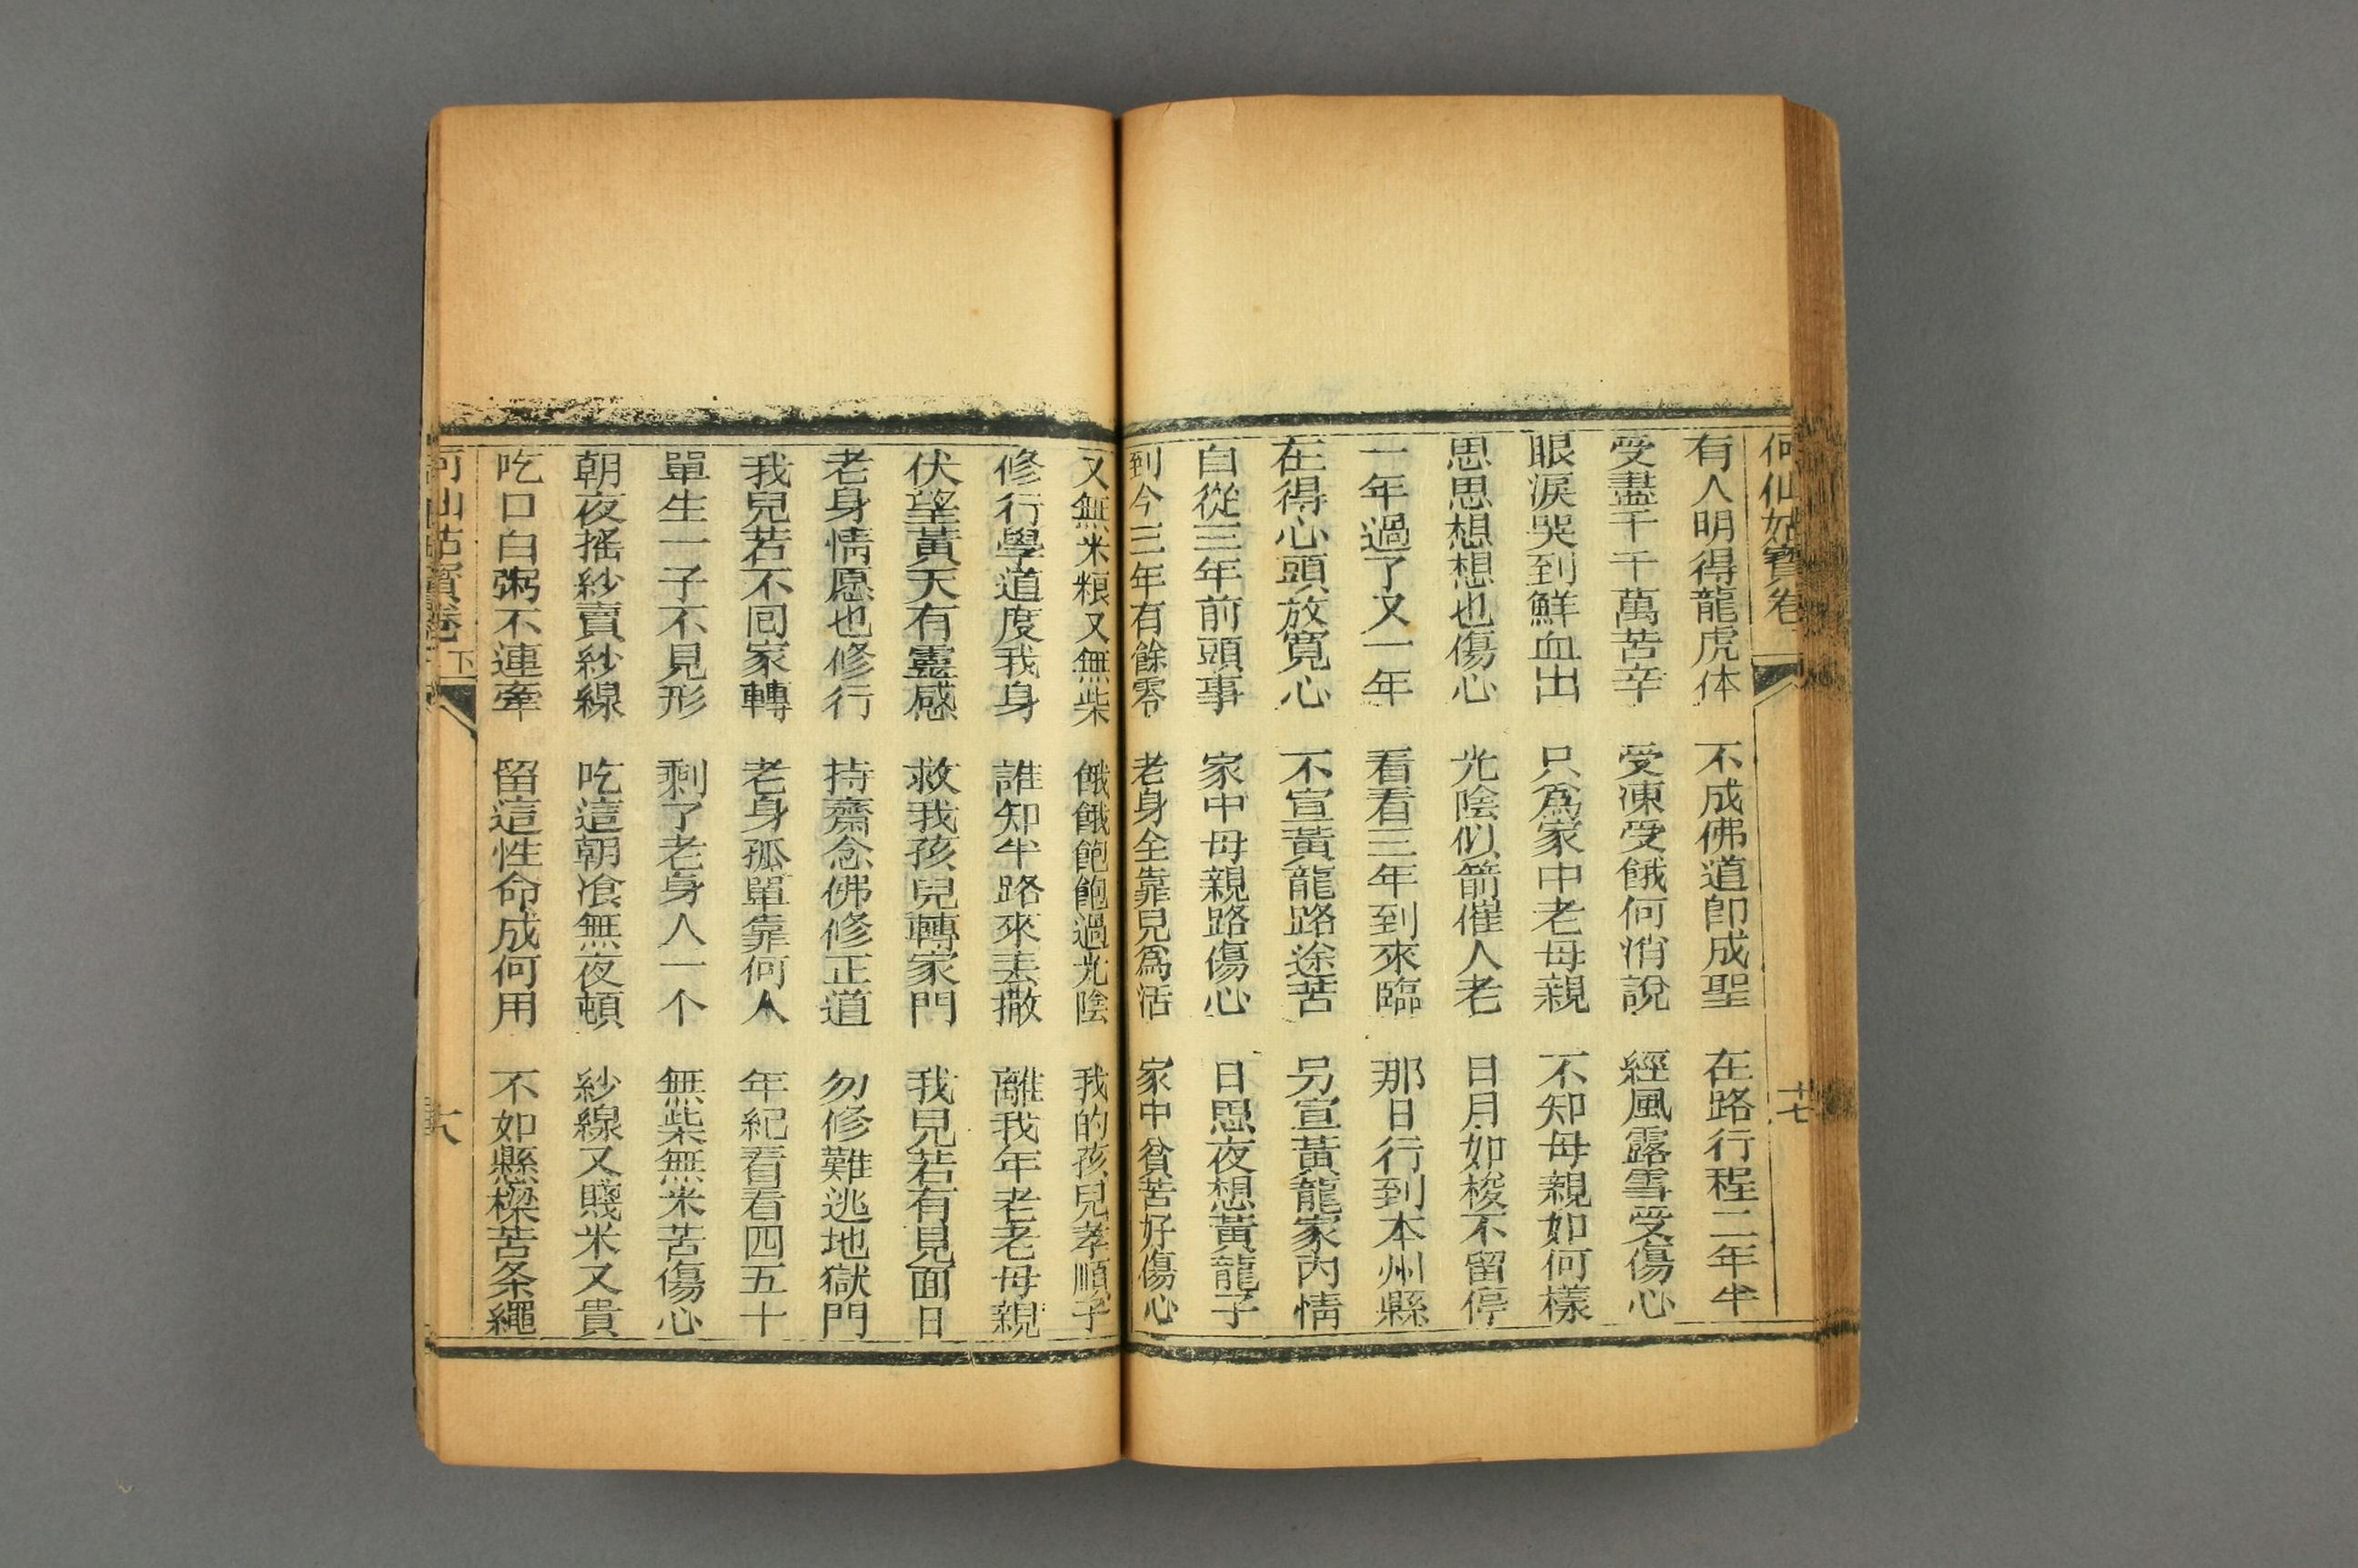 何仙姑寶卷
十七
有人明得龍虎体 不成佛道即成聖 在路行程二年半
受盡千千萬苦辛 受凍受餓何消說 經風露雪受傷心
眼淚哭到鮮血出 只為家中老母親 不知母親如何樣
思思想想也傷心 光陰似箭催人老 日月如梭不留停
一年過了又一年 看看三年到來臨 那日行到本州縣
在得心頭放寬心 不宣黃龍路途苦 另宣黃龍家內情
自從三年前頭事 家中母親路傷心 日思夜想黃龍子
到今三年有餘零 老身全靠兒為活 家中貧苦好傷心
又無米粮又無柴 餓餓飽飽過光陰 我的孩兒孝順子
修行學道度我身 誰知半路來丟撒 離我年老老母親
伏望黃天有靈感 救我孩兒轉家門 我兒若有見面日
老身情愿也修行 持齋念佛修正道 勿修難逃地獄門
我兒若不囘家轉 老身孤單靠何人 年紀看看四五十
單生一子不見形 剩了老身人一个 無柴無米苦傷心
朝夜搖紗賣紗線 吃這朝飡無夜頓 紗線又賤米又貴
吃口白粥不連牽 留這性命成何用 不如懸樑苦条繩
何仙姑寶卷 下
十八